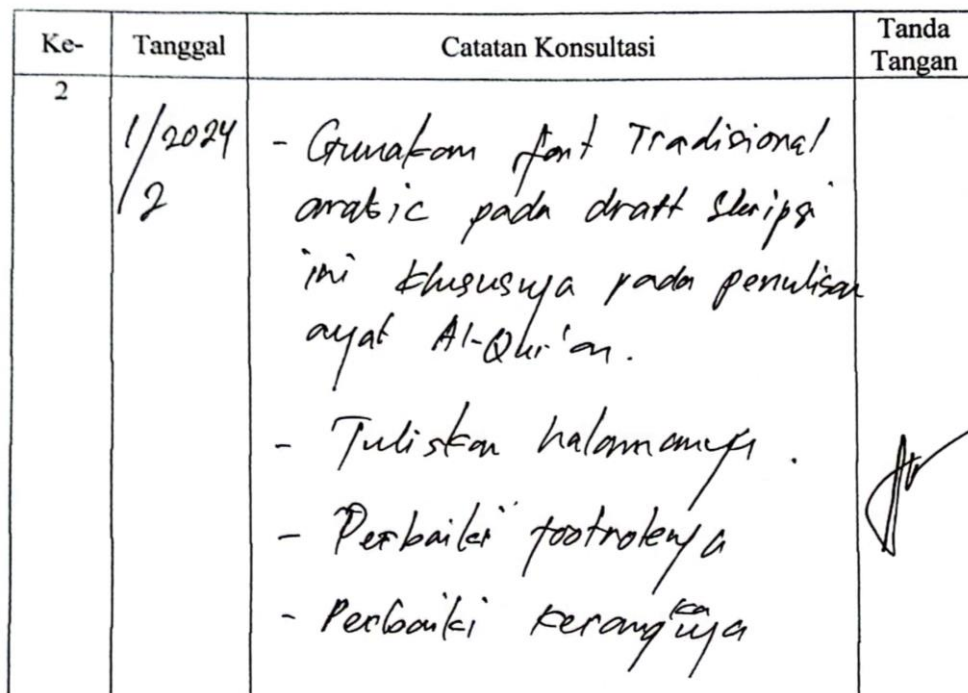 Ke-
Tanggal
Catatan Konsultasi
Tanda
Tangan
2
1/2024
/2
- Gunakan font Tradisional
arabic pada draft skripsi
ini khususnya pada penulisan
ayat Al-Qur'an.
- Tuliskan halamannya.
- Perbaiki footnotenya
- Perbaiki kerangkanya